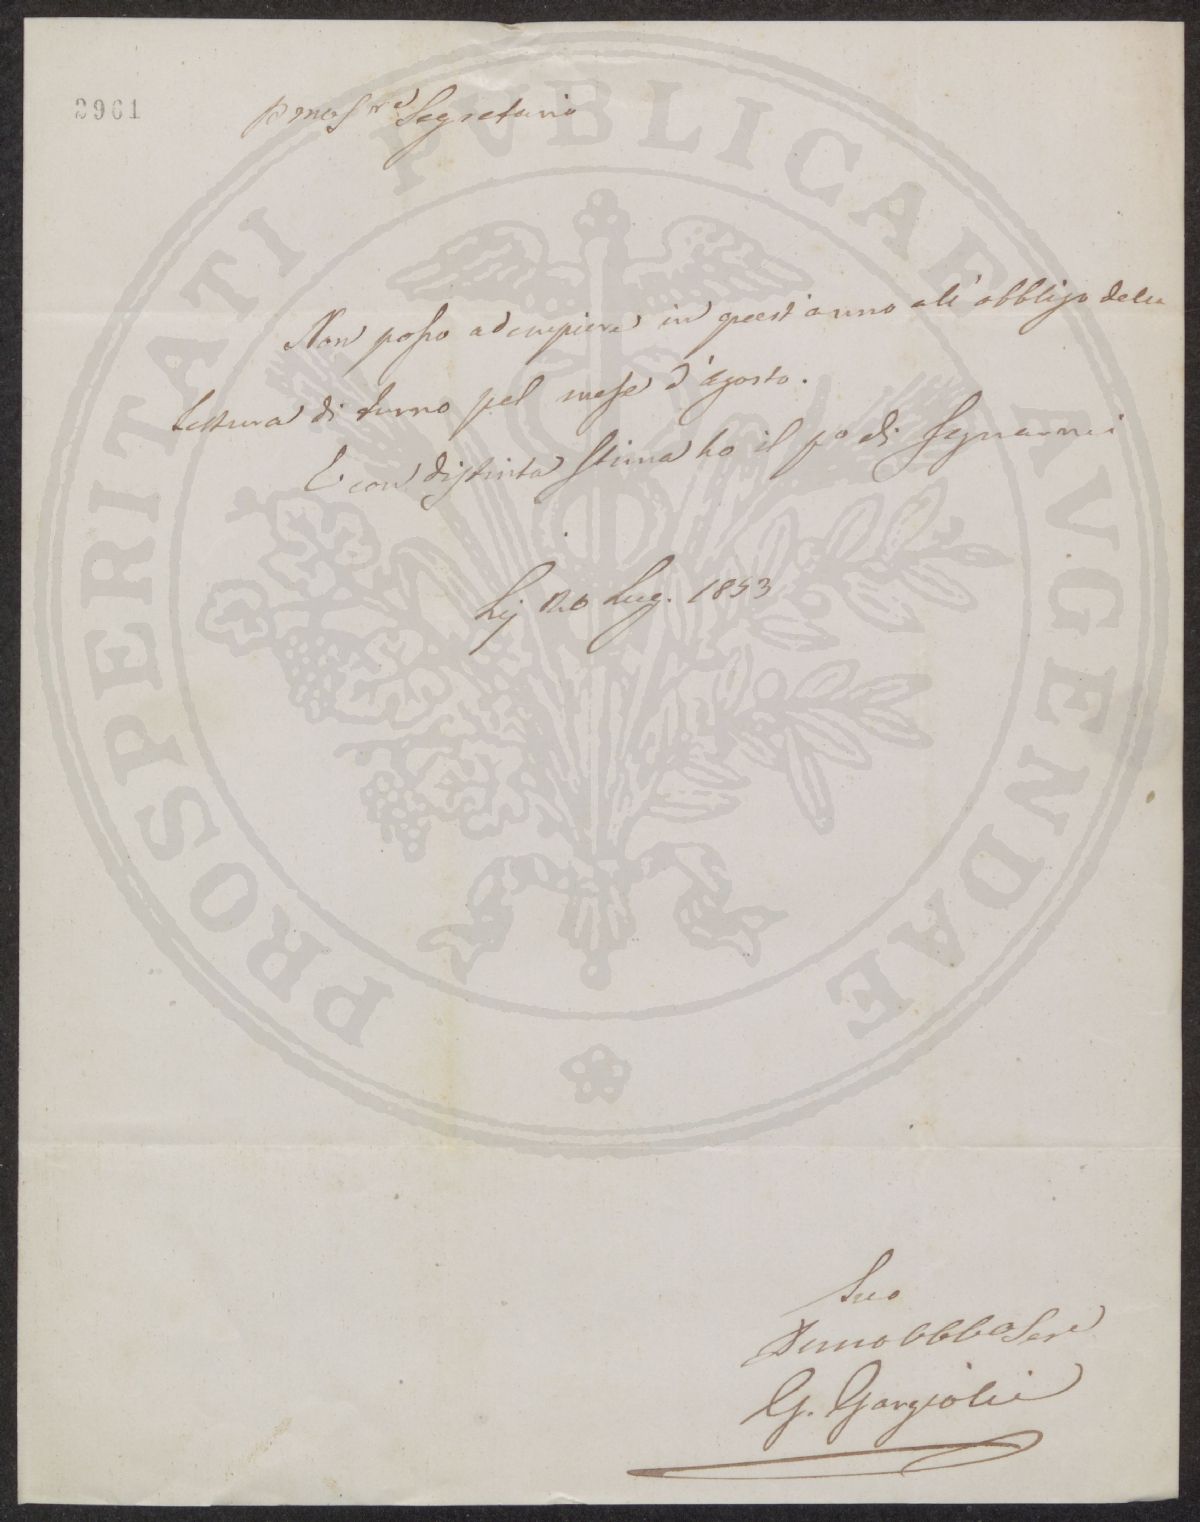 3961
Pmo Sre Segretario
Non posso adempiere in quest'anno all'obbligo della
lettura di turno pel mese d'Agosto.
E con distinta stima ho il po di segnarmi
Lì 26 Lug. 1853
Suo
Dmo Obbmo Sere
G. Gargiolli
PROSPERITATI PVBLICAE AVGENDAE